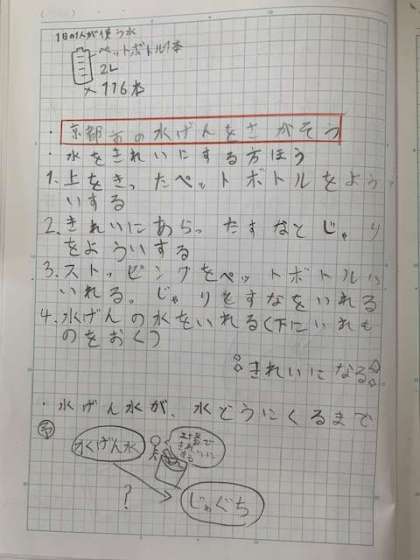 1日の1人が使う水
ペットボトル1本
2L
×116本
・京都市の水げんをさがそう
・水をきれいにする方ほう
1. 上をきったペットボトルをよういする
いする
2. きれいにあらったすなとじゃり
をよういする
3. ストッピングをペットボトルに
いれる。じゃりとすなをいれる
4. 水げんの水をいれる(下にいれも
のをおく)
きれいになる
・水げん水が、水どうにくるまで
水げん水
工場で
きれ
いに
?
じゃぐち